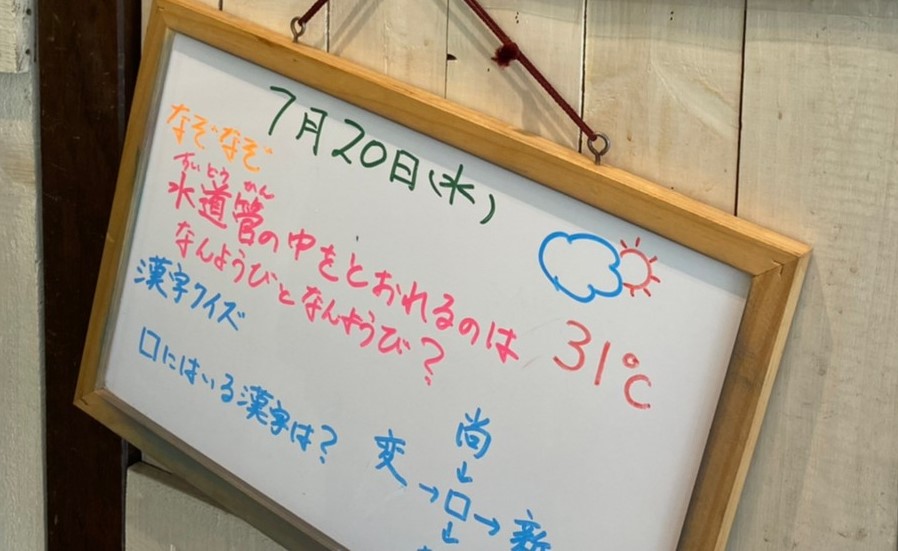 7月20日(水)
なぞなぞ
すいどうかん
水道管の中をとおれるのは
なんようびとなんようび?
31℃
漢字クイズ
口にはいる漢字は?
尚
↓
変→口→新
↓